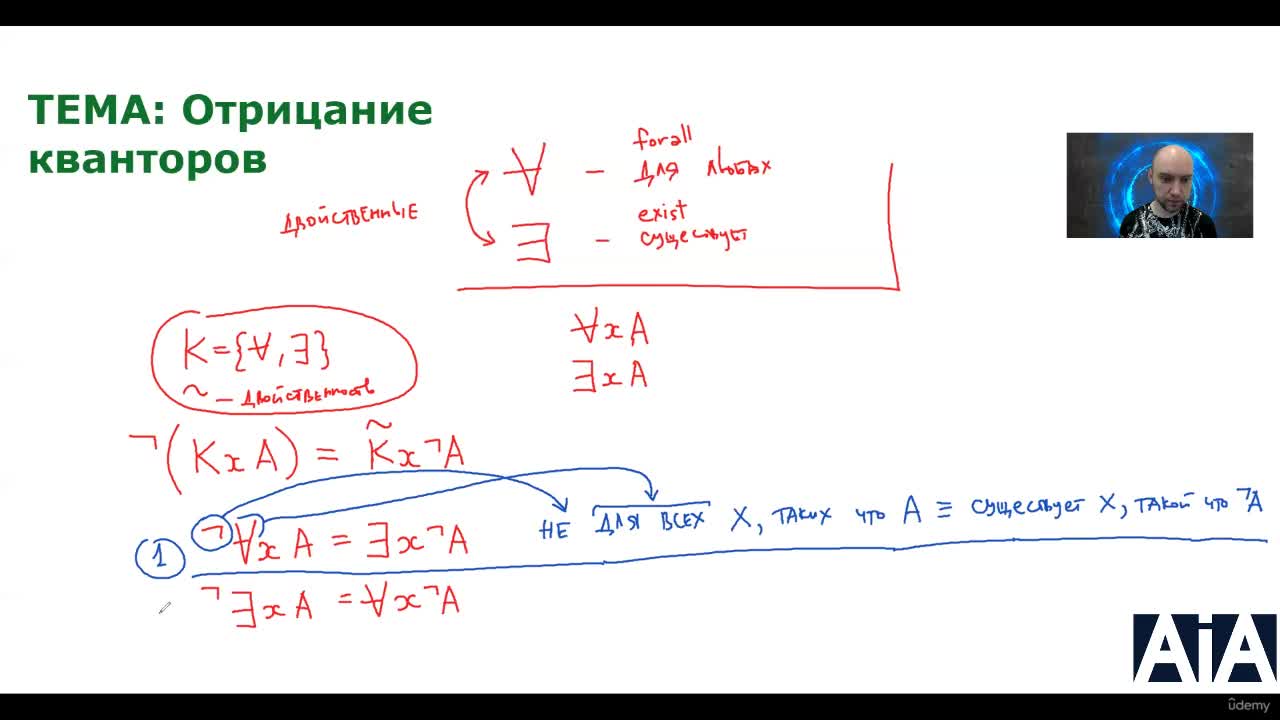 ТЕМА: Отрицание
кванторов
∀ — forall
для любых
двойственные
∃ — exist
существует
∀xA
∃xA
K={∀,∃}
~ — двойственность
¬(KxA) = K̃x¬A
① ¬∀xA = ∃x¬A
НЕ ДЛЯ ВСЕХ X, ТАКИХ ЧТО A ≡ СУЩЕСТВУЕТ X, ТАКОЙ ЧТО ¬A
¬∃xA = ∀x¬A
AiA
ûdemy